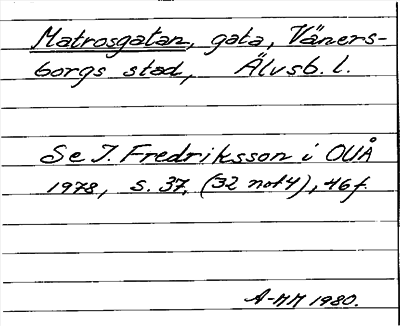 Matrosgatan, gata, Väners-
borgs stad, Älvsb. l.
Se I. Fredriksson i OUÅ
1978, s. 37, (32 not 4), 46 f.
A-MM 1980.